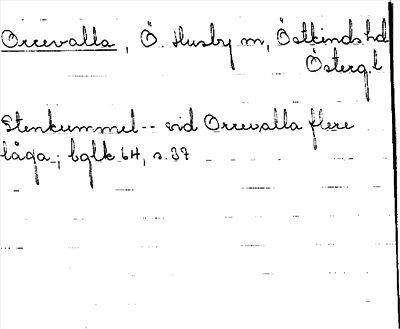 Orrevalla, Ö. Husby sn, Östkinds hd
Österg. l
Stenkummel -- vid Orrevalla flere
låga; bglk 64, s. 37